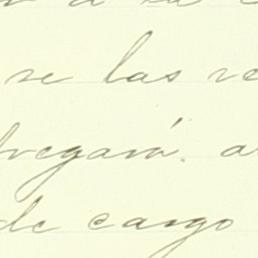 se las re
tregará. a
de cargo